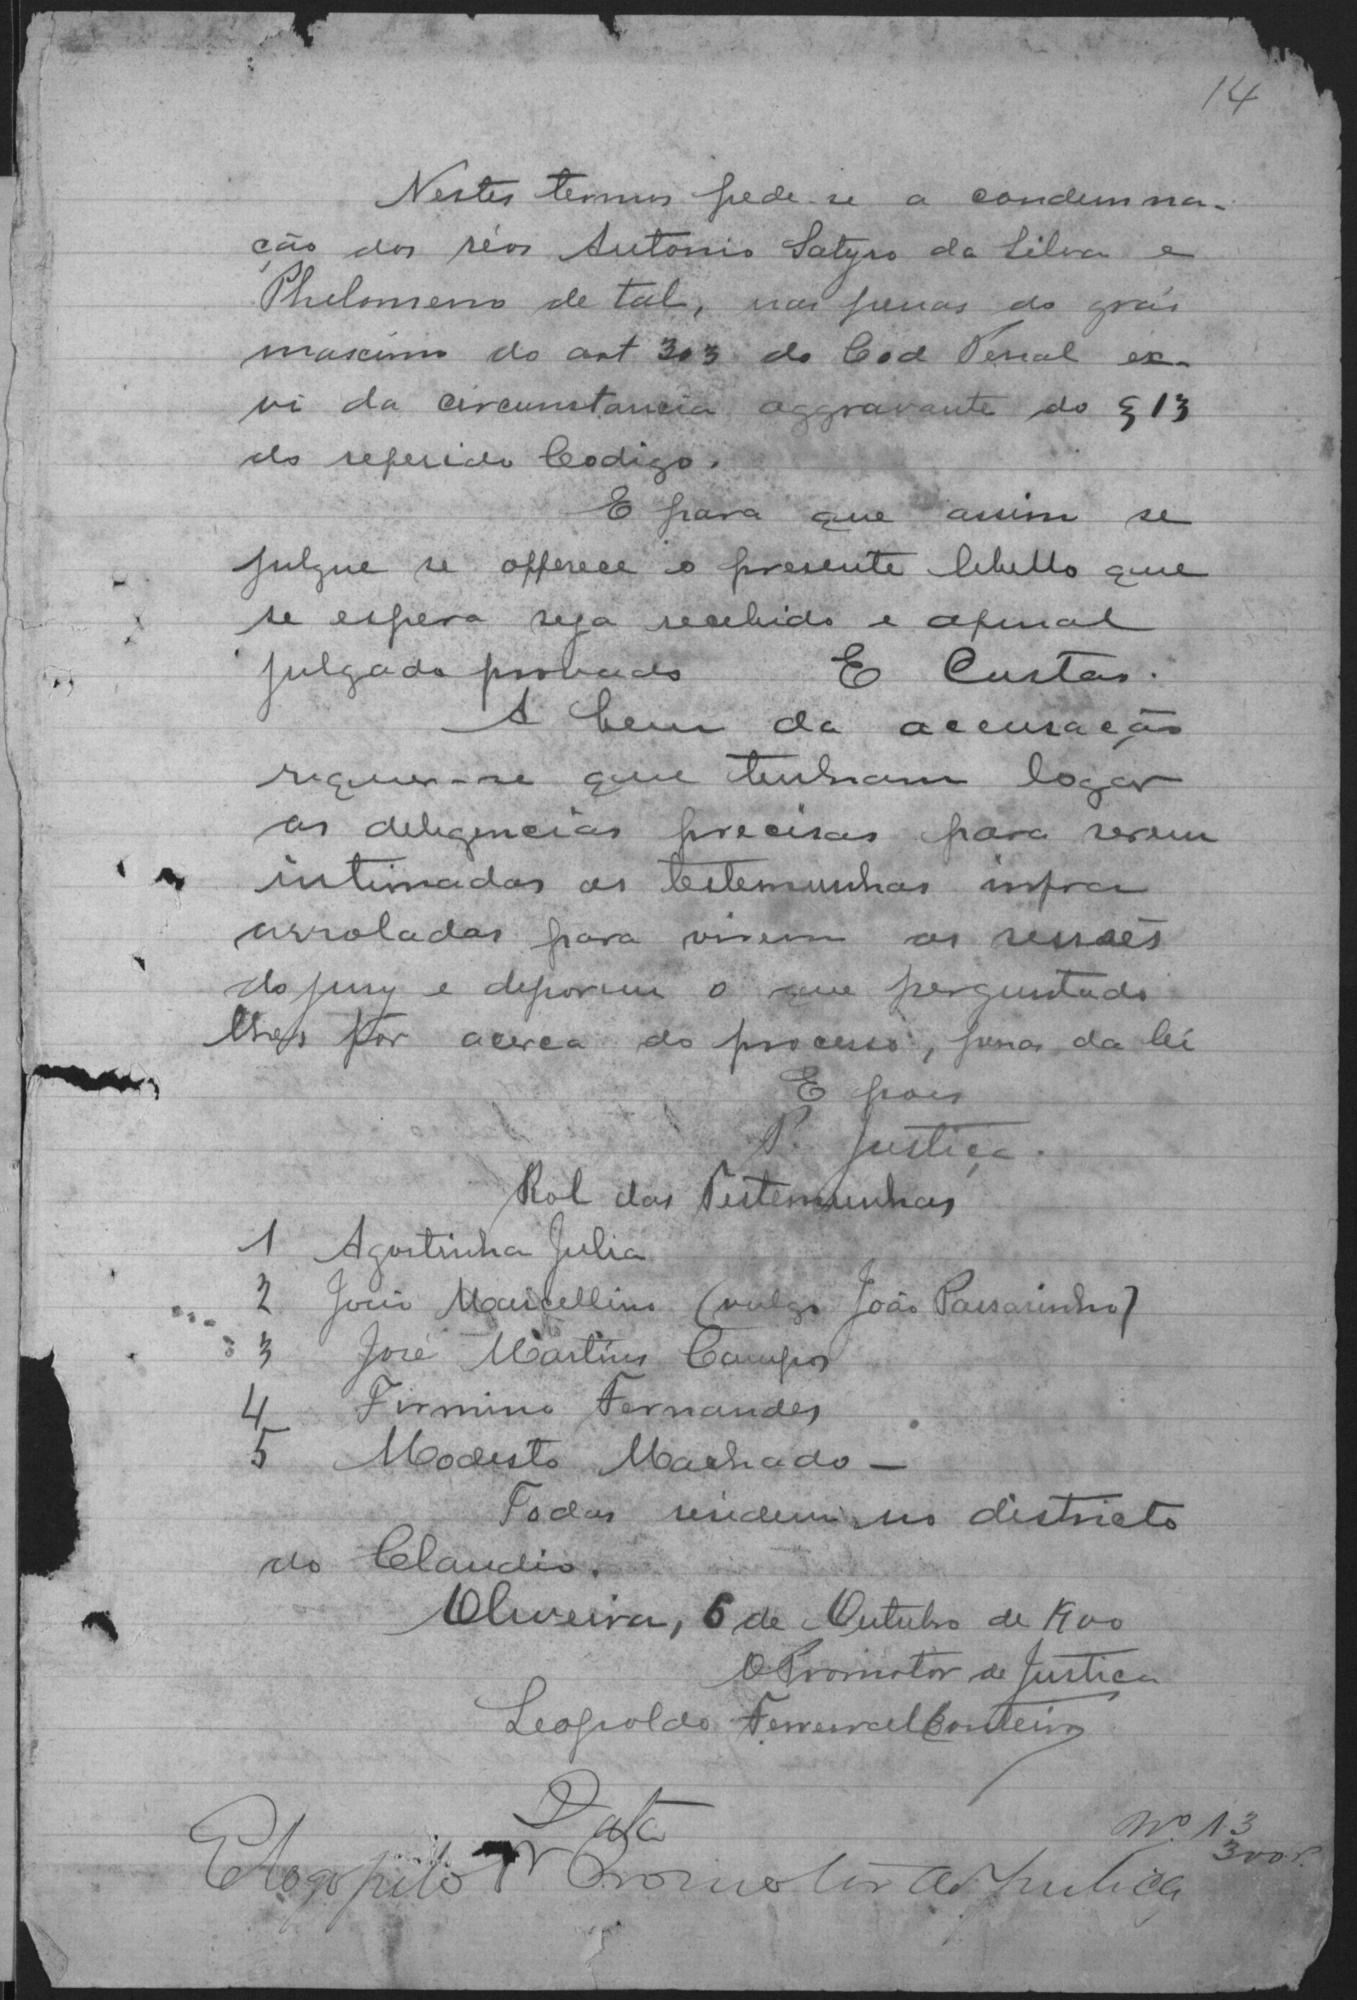 14
Nestes termos pede-se a condemna-
ção dos réos Antonio Satyro da Silva e
Philomeno de tal, nas penas do gráo
maximo do art 303 do Cod Penal ex-
vi da circunstancia aggravante do § 13
do referido Codigo.
E para que assim se
julgue se offerece o presente libello que
se espera seja recebido e afinal
julgado provado E Custas.
A bem da accusação
requer-se que tenham logar
as deligencias precisas para serem
intimadas as testemunhas infra
arroladas para virem as sessões
do jury e deporem o que perguntado
lhes for acerca do processo, penas da lei
E pois
P. Justiça.
Rol das Testemunhas
1 Agostinha Julia
2 João Marcellino (vulgo João Passarinho)
3 José Martins Campos
4 Firmino Fernandes
5 Modesto Machado —
Todas residem no districto
do Claudio.
Oliveira, 6 de Outubro de 1900
O Promotor de Justiça
Leopoldo Ferreira Monteiro
Data
Nº 13
300r.
Promotor de Justiça